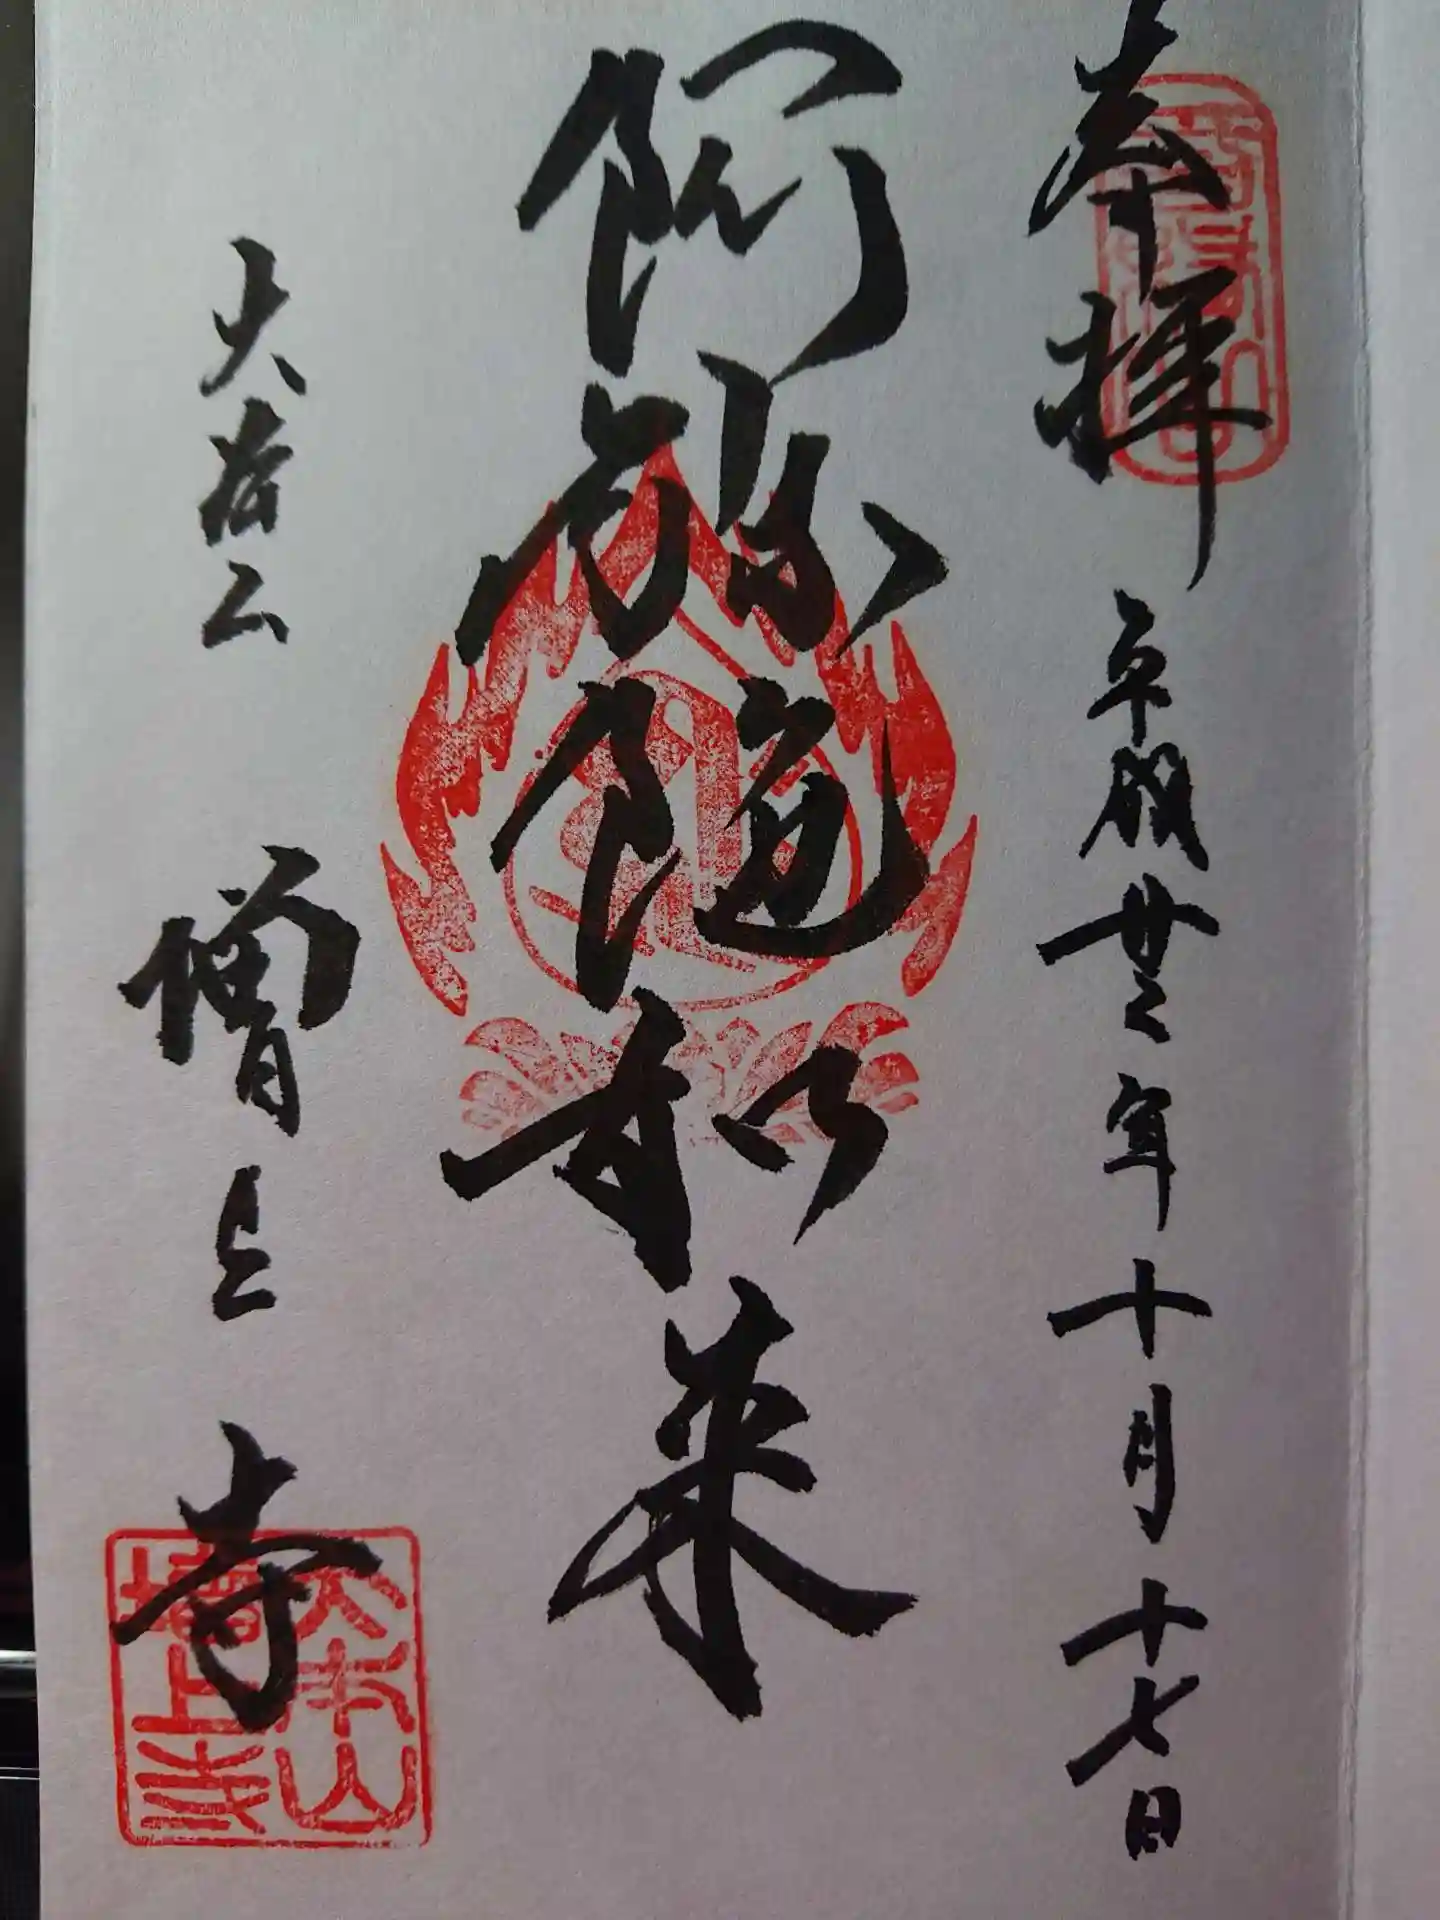 奉拝 平成廿二年十月十七日
阿弥陀如来
大本山 増上寺
大本山
増上寺